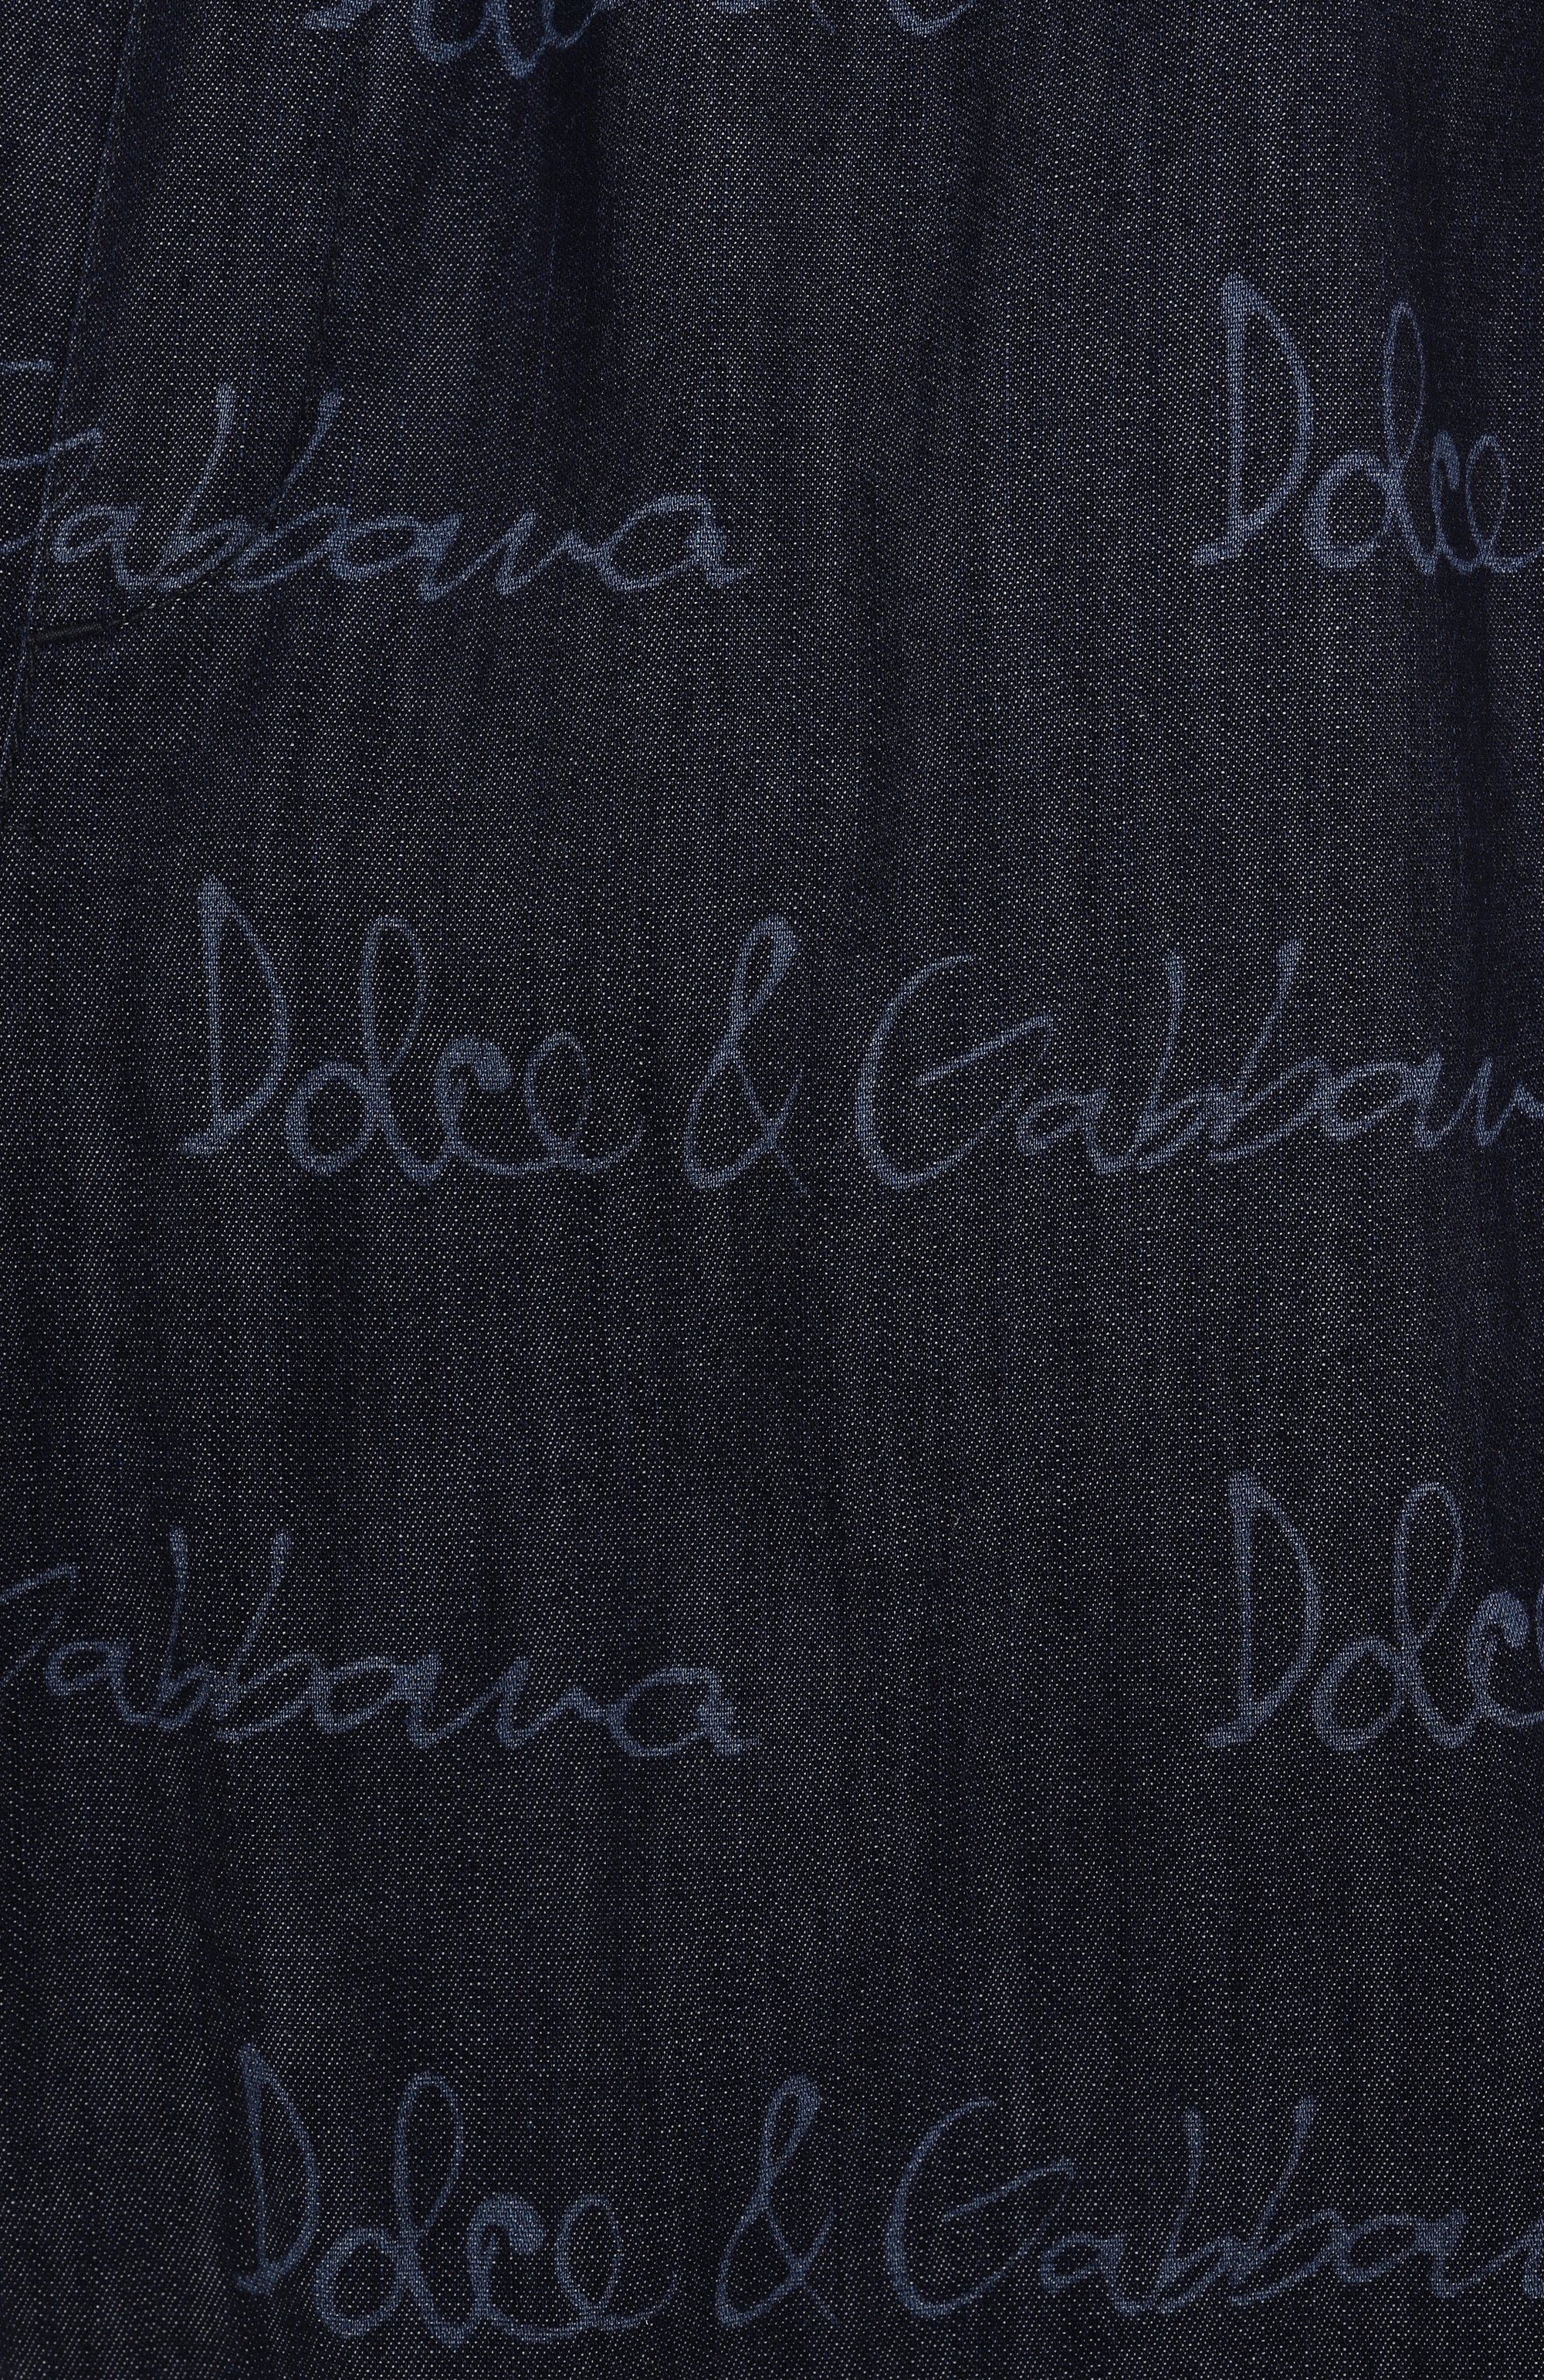 Gabbana Dolce
Dolce & Gabban
Gabbana Dolc
Dolce & Gabban